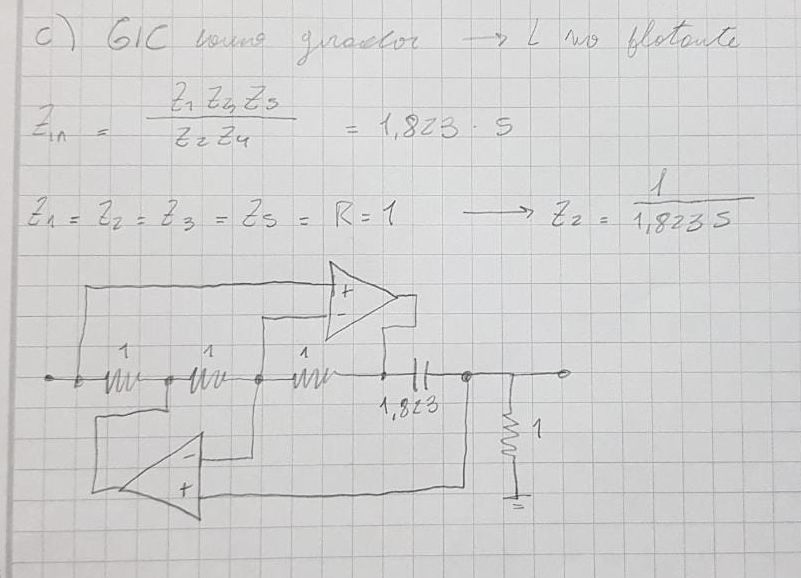 c) GIC como girador → L no flotante
Zin = Z1 Z3 Z5 / Z2 Z4 = 1,823 · S
Z1 = Z2 = Z3 = Z5 = R = 1 → Z2 = 1 / 1,823 S
+
-
1 1 1
1,823
1
-
+